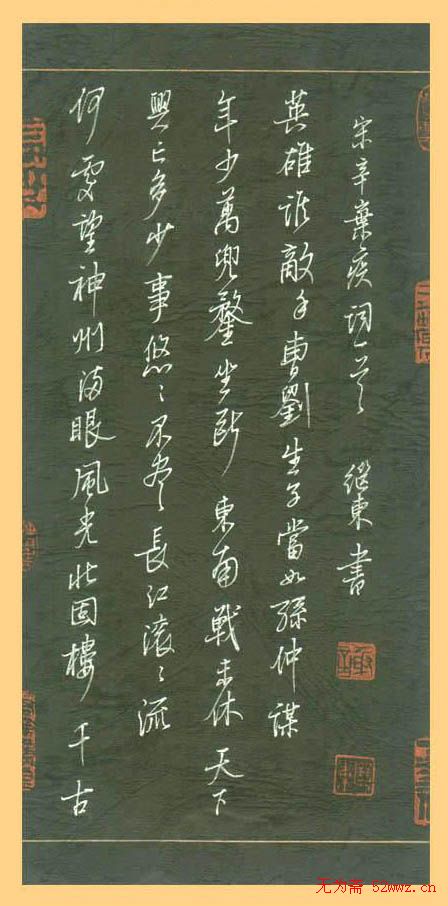 何處望神州滿眼風光北固樓千古
興亡多少事悠〻不盡長江滾〻流
年少萬兜鍪坐斷東南戰未休天下
英雄誰敵手曹劉生子當如孫仲謀
宋辛棄疾詞一首 繼東書
无为斋 52wwz.cn